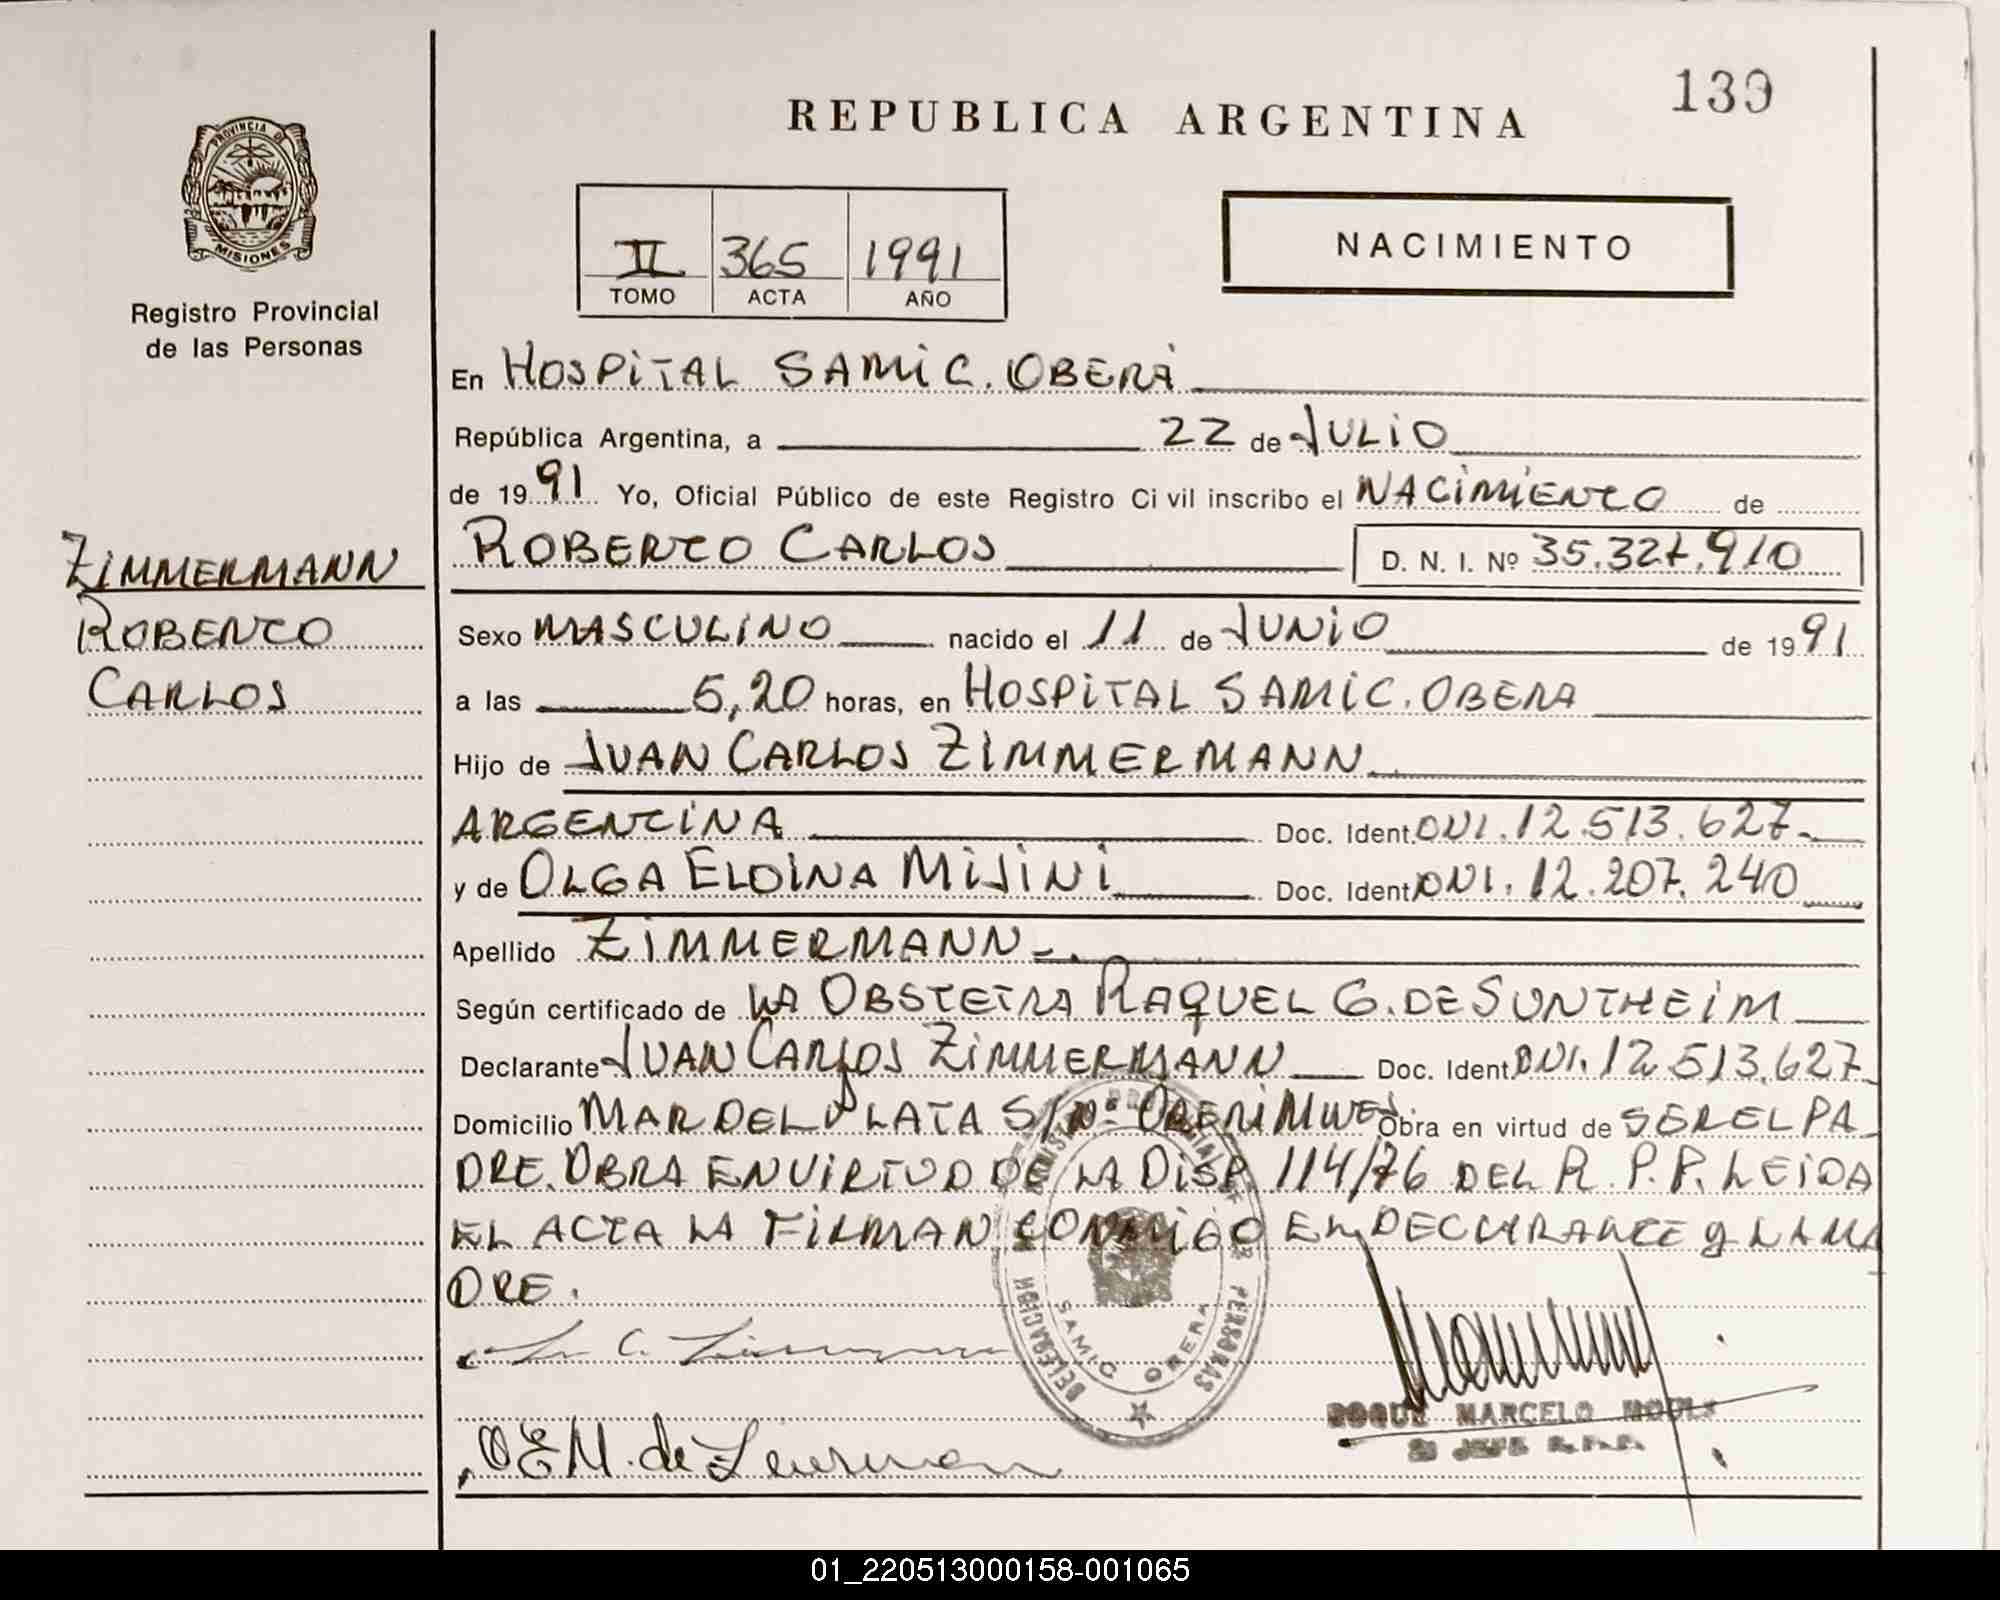 139
REPUBLICA ARGENTINA
PROVINCIA DE
MISIONES
Registro Provincial
de las Personas
II 365 1991
TOMO ACTA AÑO
NACIMIENTO
En HOSPITAL SAMIC. OBERÁ
República Argentina, a 22 de JULIO
de 1991 Yo, Oficial Público de este Registro Civil inscribo el NACIMIENTO de
ROBERTO CARLOS D. N. I. Nº 35.327.910
ZIMMERMANN
ROBERTO
CARLOS
Sexo MASCULINO nacido el 11 de JUNIO de 1991
a las 5,20 horas, en HOSPITAL SAMIC. OBERA
Hijo de JUAN CARLOS ZIMMERMANN
ARGENTINA Doc. Ident. DNI. 12.513.627
y de OLGA ELDINA MIJINI Doc. Ident. DNI. 12.207.240
Apellido ZIMMERMANN
Según certificado de LA OBSTETRA RAQUEL G. DE SUNTHEIM
Declarante JUAN CARLOS ZIMMERMANN Doc. Ident. DNI. 12.513.627
Domicilio MAR DEL PLATA S/Nº OBERA MNES Obra en virtud de SER EL PA
DRE. OBRA EN VIRTUD DE LA DISP. 114/76 DEL R.P.P. LEIDA
EL ACTA LA FIRMAN CONMIGO EL DECLARANTE y LA MA
DRE.
DELEGACION PERSONAS
SAMIC OBERA
ROQUE MARCELO
JEFE R.P.P.
O E M. de
01_220513000158-001065